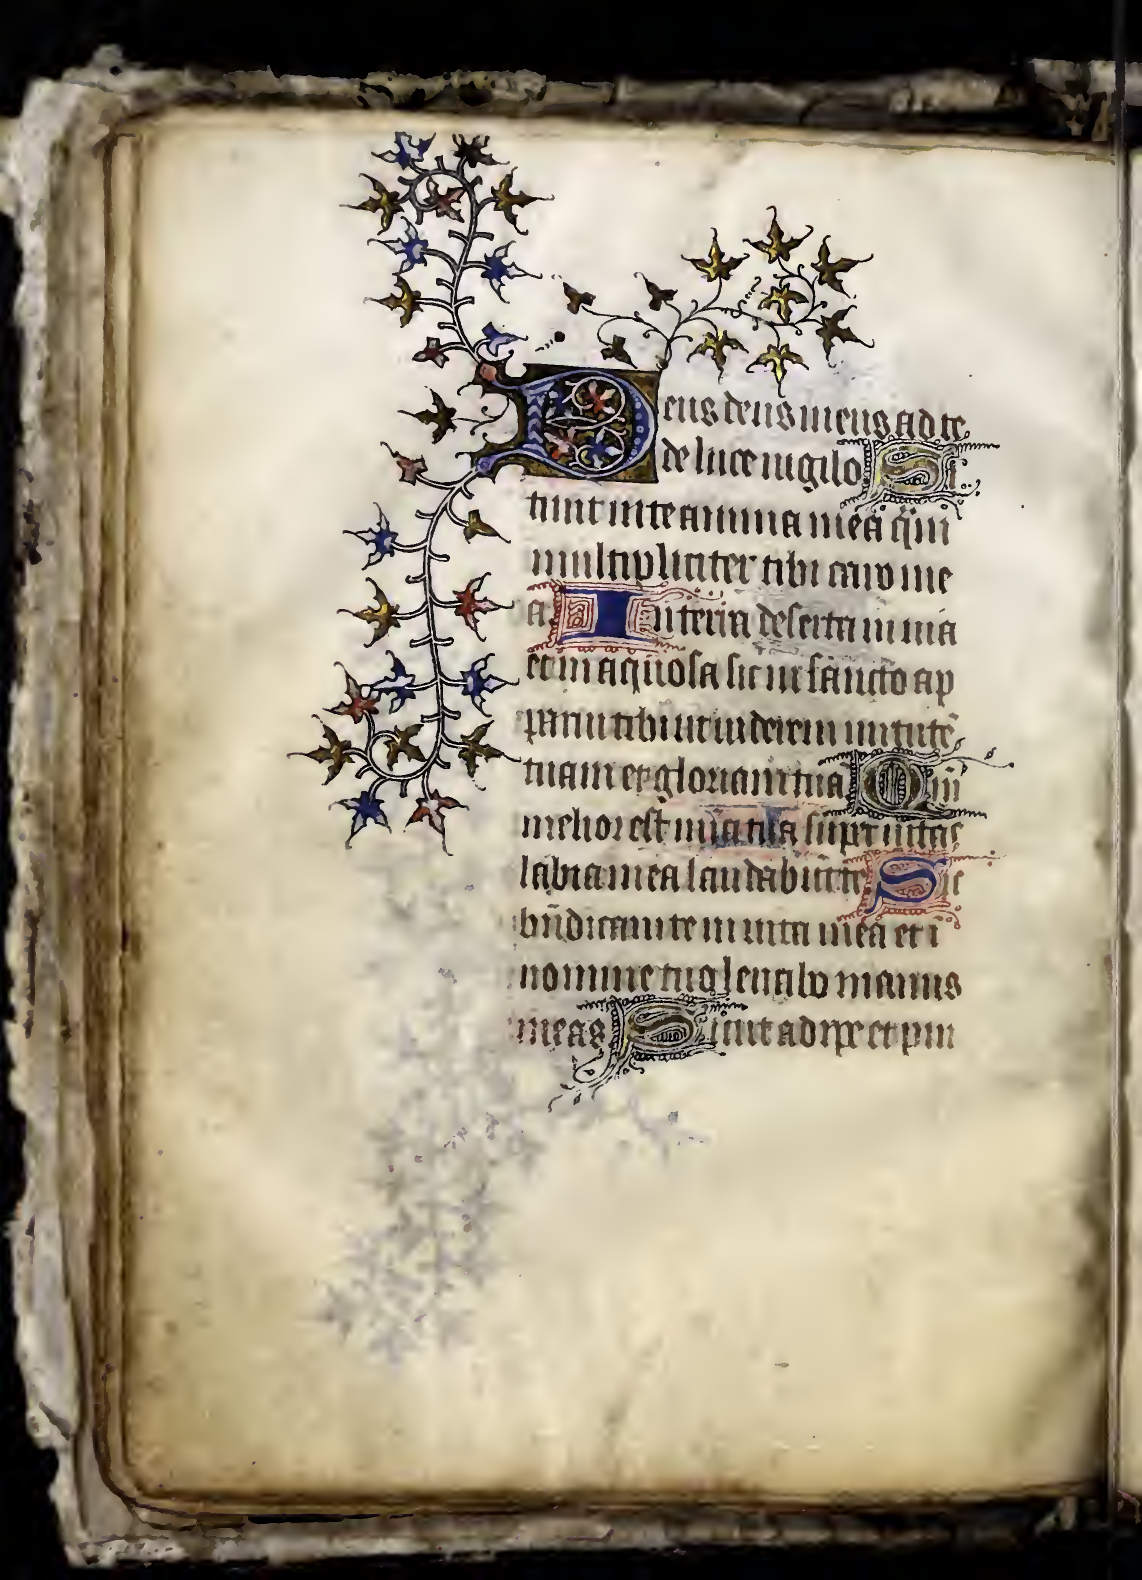 Deus deus meus ad te
de luce uigilo Si
tiuit in te anima mea q̃m
multipliciter tibi caro me
a In terra deserta in uia
et in aquosa sic in sancto ap
parui tibi ut uiderem uirtutē
tuam et gloriam tuā Qm̄
melior est mĩa tua sup̱ uitas
labia mea laudabūt te Sic
bn̄dicam te in uita mea et ī
nomine tuo leuabo manus
meas Sicut adipe et pin